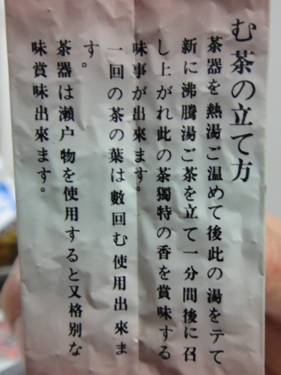 む茶の立て方
茶器を熱湯ご温めて後此の湯をテて
新に沸騰湯ご茶を立て一分間後に召
し上がれ此の茶獨特の香を賞味する
味事が出來ます。
一回の茶の葉は數回む使用出來ま
す。
茶器は瀬戸物を使用すると又格別な
味賞味出來ます。